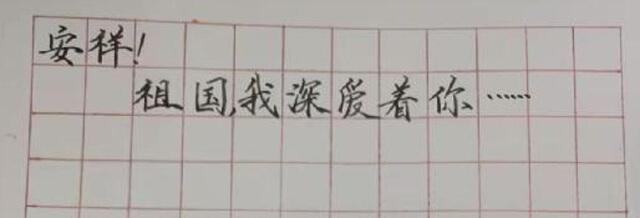 安祥！
祖国，我深爱着你……